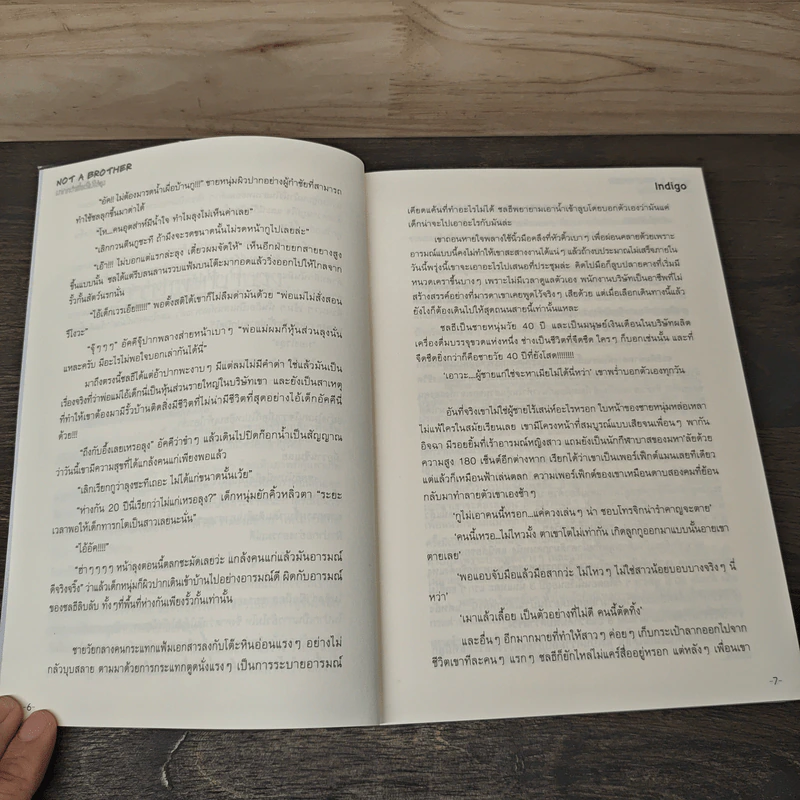 NOT A BROTHER
"อัค!! ไม่ต้องมารดน้ำเผื่อบ้านกู!!!" ชายหนุ่มผิวปากอย่างผู้กำชัยที่สามารถ
ทำใช้ชลลุกขึ้นมาด่าได้
"โห...คนอุตส่าห์มีน้ำใจ ทำไมลุงไม่เห็นค่าเลย"
"เลิกกวนตีนกูซะที ถ้ามึงจะรดขนาดนั้นไม่รดหน้ากูไปเลยล่ะ"
"เอ๊า!!! ไม่บอกแต่แรกล่ะลุง เดี๋ยวผมจัดให้" เห็นอีกฝ่ายยกสายยางสูง
ขึ้นแบบนั้น ชลได้แต่รีบลนลานรวบแฟ้มบนโต๊ะมากอดแล้ววิ่งออกไปให้ไกลจาก
รั้วกั้นสัตว์นรกนั่น
"ไอ้เด็กเวรเอ๊ย!!!!!!" พอตั้งสติได้เขาก็ไม่ลืมด่ามันด้วย "พ่อแม่ไม่สั่งสอน
รึไงวะ"
"จุ๊ๆๆๆ" อัคคีจุ๊ปากพลางส่ายหน้าเบาๆ "พ่อแม่ผมก็หุ้นส่วนลุงนั่น
แหละครับ มีอะไรไม่พอใจบอกเล่ากันได้นี่"
มาถึงตรงนี้ชลธีได้แต่อ้าปากพะงาบๆ มีแต่ลมไม่มีคำด่า ใช่แล้วมันเป็น
เรื่องจริงที่ว่าพ่อแม่ไอ้เด็กนี่เป็นหุ้นส่วนรายใหญ่ในบริษัทเขา และยังเป็นสาเหตุ
ที่ทำให้เขาต้องมามีรั้วบ้านติดสิ่งมีชีวิตที่ไม่น่ามีชีวิตที่สุดอย่างไอ้เด็กอัคคีนี่
ด้วย!!!
"ถึงกับอึ้งเลยเหรอลุง" อัคคีว่าขำๆ แล้วเดินไปปิดก๊อกน้ำเป็นสัญญาณ
ว่าวันนี้เขามีความสุขที่ได้แกล้งคนแก่เพียงพอแล้ว
"เลิกเรียกกูว่าลุงซะทีเถอะ ไม่ได้แก่ขนาดนั้นเว้ย"
"ห่างกัน 20 ปีนี่เรียกว่าไม่แก่เหรอลุง?" เด็กหนุ่มยักคิ้วหลิ่วตา "ระยะ
เวลาพอให้เด็กทารกโตเป็นสาวเลยนะนั่น"
"ไอ้อัค!!!!"
"ฮ่าๆๆๆๆ หน้าลุงตอนนี้ตลกชะมัดเลยว่ะ แกล้งคนแก่แล้วมันอารมณ์
ดีจริงจริ๊ง" ว่าแล้วเด็กหนุ่มก็ผิวปากเดินเข้าบ้านไปอย่างอารมณ์ดี ผิดกับอารมณ์
ของชลธีลิบลับ ทั้งๆที่พื้นที่ห่างกันเพียงรั้วกั้นเท่านั้น
ชายวัยกลางคนกระแทกแฟ้มเอกสารลงกับโต๊ะหินอ่อนแรงๆ อย่างไม่
กลัวบุบสลาย ตามมาด้วยการกระแทกตูดนั่งแรงๆ เป็นการระบายอารมณ์
-6-
Indigo
เคียดแค้นที่ทำอะไรไม่ได้ ชลธีพยายามเอาน้ำเข้าลูบโดยบอกตัวเองว่ามันแค่
เด็กน่าจะไปเอาอะไรกับมันล่ะ
เขาถอนหายใจพลางใช้นิ้วมือคลึงที่หัวคิ้วเบาๆ เพื่อผ่อนคลายด้วยเพราะ
อารมณ์แบบนี้คงไม่ทำให้เขาสะสางงานได้แน่ๆ แล้วถ้างบประมาณไม่เสร็จภายใน
วันนี้พรุ่งนี้เขาจะเอาอะไรไปเสนอที่ประชุมล่ะ คิดไปมือก็ลูบปลายคางที่เริ่มมี
หนวดเคราขึ้นบางๆ เพราะไม่มีเวลาดูแลตัวเอง พนักงานบริษัทเป็นอาชีพที่ไม่
สร้างสรรค์อย่างที่มารดาเขาเคยพูดไว้จริงๆ เสียด้วย แต่เมื่อเลือกเดินทางนี้แล้ว
ยังไงก็ต้องเดินไปให้สุดถนนสายนี้เท่านั้นแหละ
ชลธีเป็นชายหนุ่มวัย 40 ปี และเป็นมนุษย์เงินเดือนในบริษัทผลิต
เครื่องดื่มบรรจุขวดแห่งหนึ่ง ช่างเป็นชีวิตที่จืดชืด ใครๆ ก็บอกเช่นนั้น และที่
จืดชืดยิ่งกว่าก็คือชายวัย 40 ปีที่ยังโสด!!!!!!!!
'เอาวะ...ผู้ชายแก่ใช่จะหาเมียไม่ได้นี่หว่า' เขาพร่ำบอกตัวเองทุกวัน
อันที่จริงเขาไม่ใช่ผู้ชายไร้เสน่ห์อะไรหรอก ใบหน้าของชายหนุ่มหล่อเหลา
ไม่แพ้ใครในสมัยเรียนเลย เขามีโครงหน้าที่สมบูรณ์แบบเสียจนเพื่อนๆ พากัน
อิจฉา มีรอยยิ้มที่เร้าอารมณ์หญิงสาว แถมยังเป็นนักกีฬาบาสของมหา'ลัยด้วย
ความสูง 180 เซ็นต์อีกต่างหาก เรียกได้ว่าเขาเป็นเพอร์เฟ็กต์แมนเลยทีเดียว
แต่แล้วก็เหมือนฟ้าเล่นตลก ความเพอร์เฟ็กต์ของเขาเหมือนดาบสองคมที่ย้อน
กลับมาทำลายตัวเขาเองช้าๆ
'กูไม่เอาคนนี้หรอก...แค่ควงเล่นๆ น่า ชอบโทรจิกน่ารำคาญจะตาย'
'คนนี้เหรอ...ไม่ไหวมั้ง ตาเขาโตไม่เท่ากัน เกิดลูกกูออกมาแบบนั้นอายเขา
ตายเลย'
'พอแอบจับมือแล้วมือสากว่ะ ไม่ไหวๆ ไม่ใช่สาวน้อยบอบบางจริงๆ นี่
หว่า'
'เมาแล้วเลื้อย เป็นตัวอย่างที่ไม่ดี คนนี้ตัดทิ้ง'
และอื่นๆ อีกมากมายที่ทำให้สาวๆ ค่อยๆ เก็บกระเป๋าลากออกไปจาก
ชีวิตเขาทีละคนๆ แรกๆ ชลธีก็ยักไหล่ไม่แคร์สื่ออยู่หรอก แต่หลังๆ เพื่อนเขา
-7-